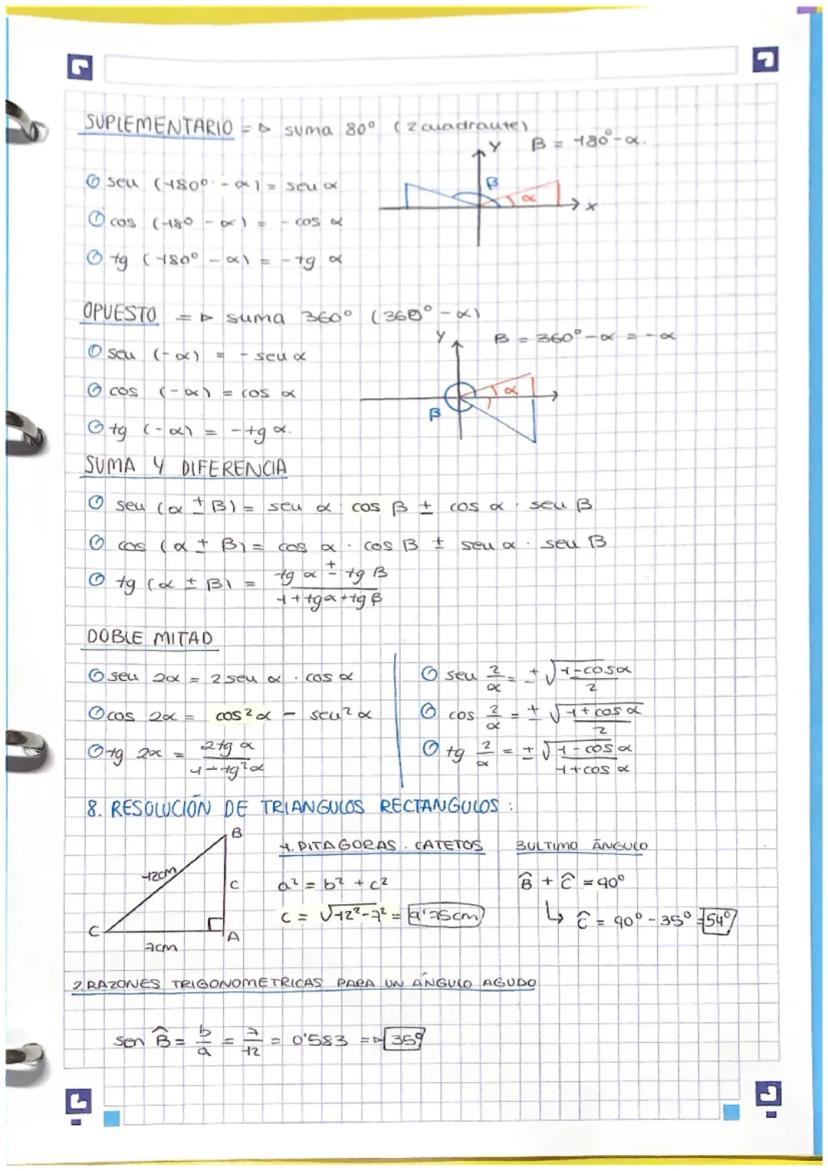 SUPLEMENTARIO => suma 80° (2 cuadrante)
Y B = 180° - α.
sen (180° - α) = sen α
B
α
x
cos (180 - α) = - cos α
tg (180° - α) = - tg α
OPUESTO => suma 360° (360° - α)
Y B = 360° - α = - α
sen (-α) = - sen α
cos (-α) = cos α
α
B
tg (-α) = - tg α.
SUMA Y DIFERENCIA
sen (α ± B) = sen α · cos B ± cos α · sen B
cos (α ± B) = cos α · cos B ± sen α · sen B
tg (α ± B) = tg α ± tg B / 1 + tg α + tg B
DOBLE MITAD
sen 2α = 2 sen α · cos α
cos 2α = cos² α - sen² α
tg 2α = 2 tg α / 1 - tg² α
sen 2/α = ± √1 - cos α / 2
cos 2/α = ± √1 + cos α / 2
tg 2/α = ± √1 - cos α / 1 + cos α
8. RESOLUCIÓN DE TRIANGULOS RECTANGULOS :
B
12cm
C
C
A
7cm
1. PITAGORAS. CATETOS
a² = b² + c²
c = √12² - 7² = 9'75cm
3 ULTIMO ÁNGULO
B̂ + Ĉ = 90°
↳ Ĉ = 90° - 35° = 54°
2. RAZONES TRIGONOMETRICAS PARA UN ÁNGULO AGUDO
sen B̂ = b/a = 7/12 = 0'583 => 35°